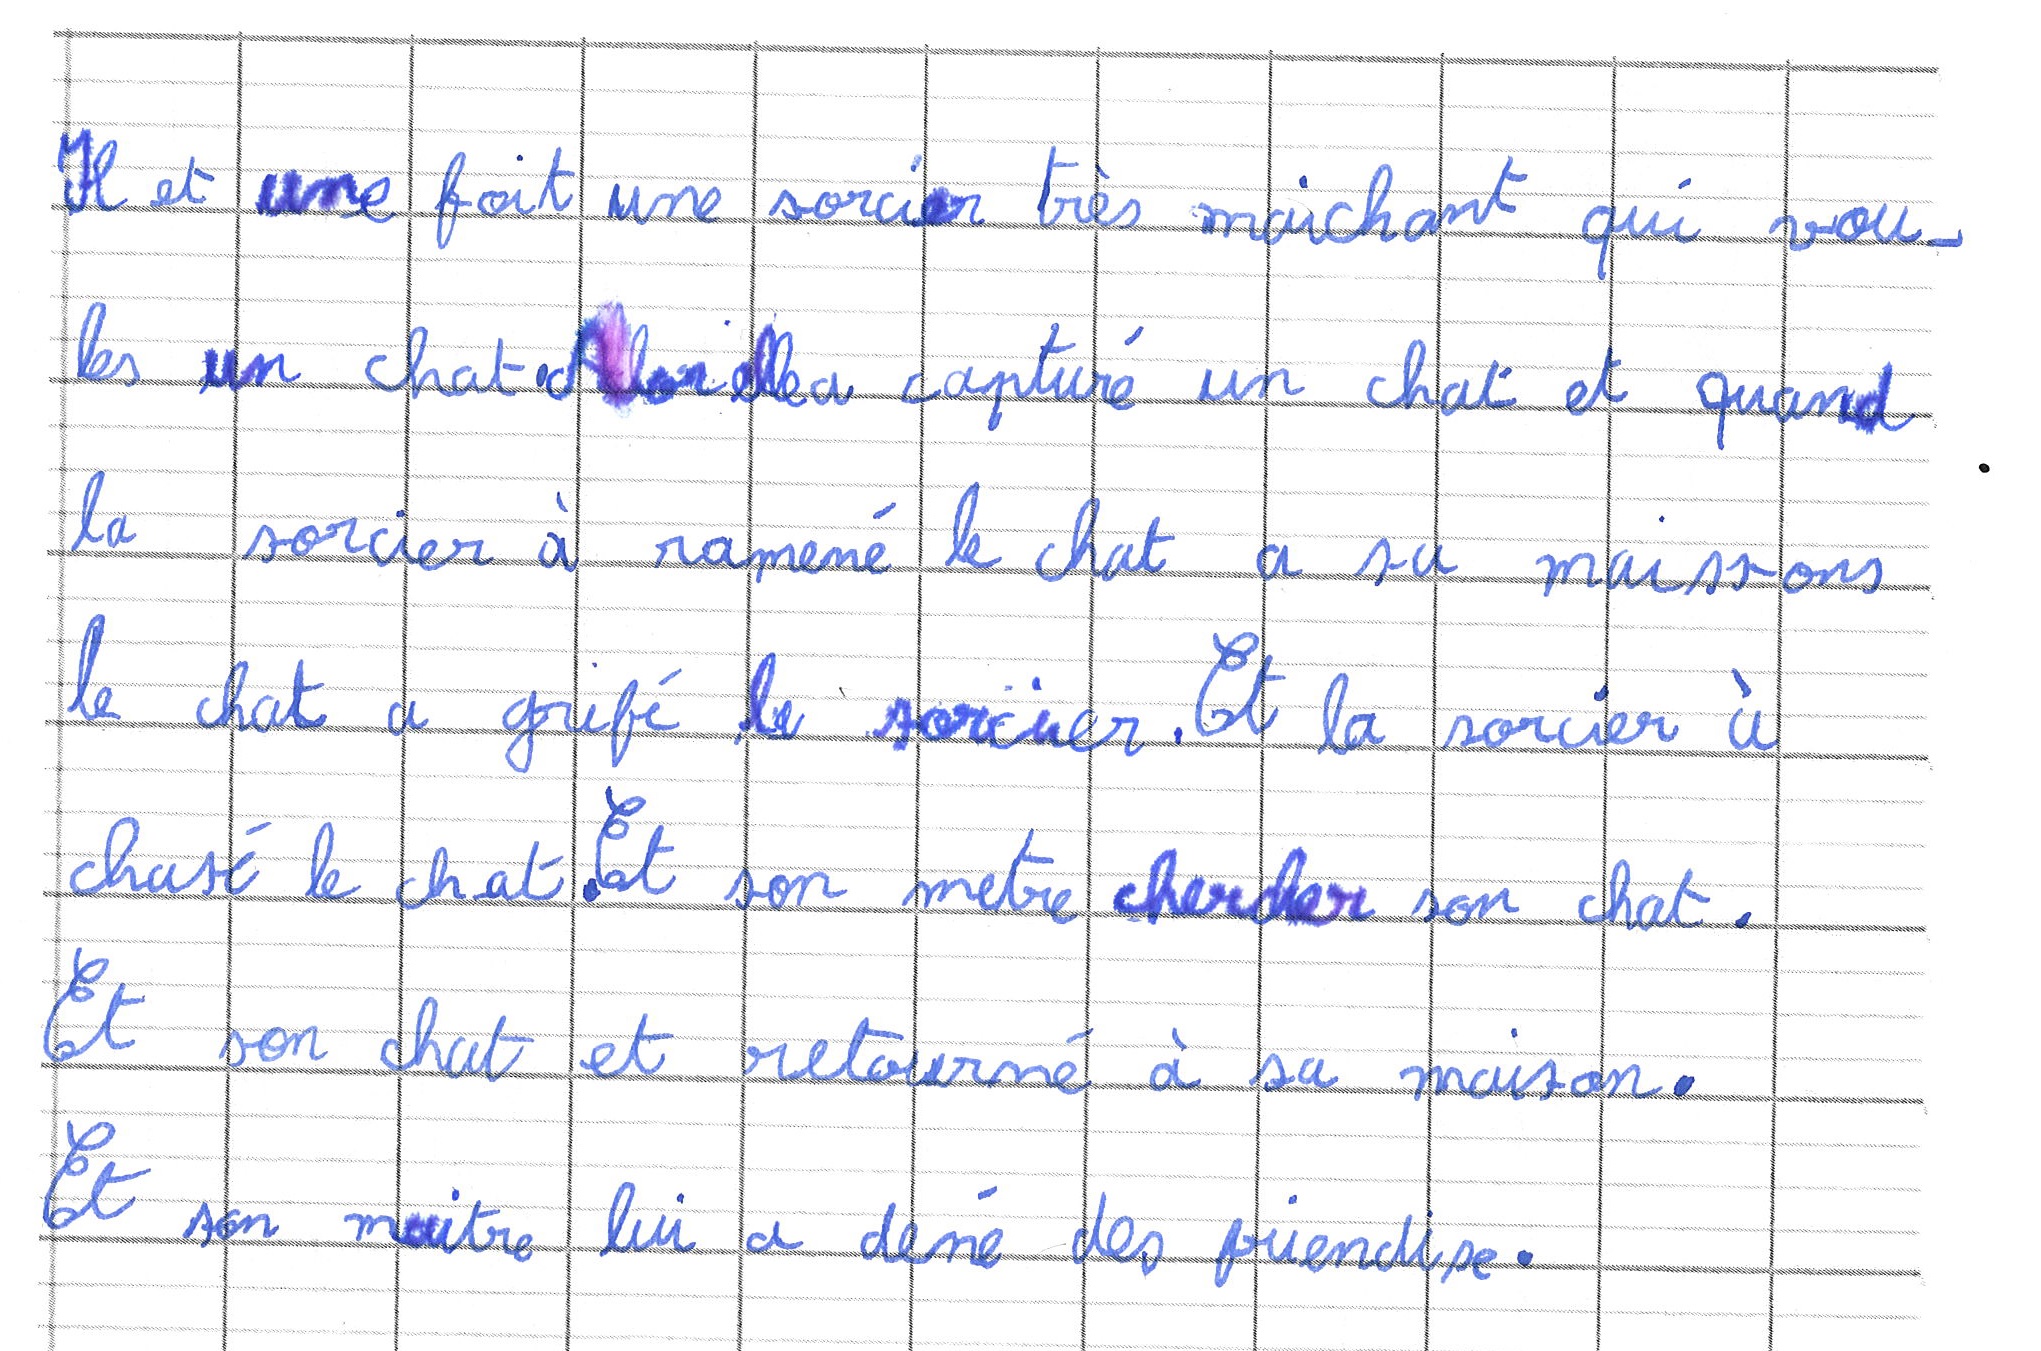 Il et une foit une sorcier très maichant qui vou-
les un chat. Alor illa capturé un chat et quand
la sorcier à ramené le chat a sa maissons
le chat a grifé le sorcier. Et la sorcier à
chasé le chat. Et son metre chercher son chat.
Et son chat et retourné à sa maison.
Et son maitre lui a dené des friendise.